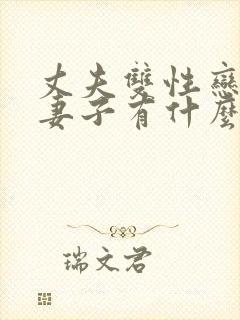 丈夫雙性戀
妻子有什麼
瑞文君